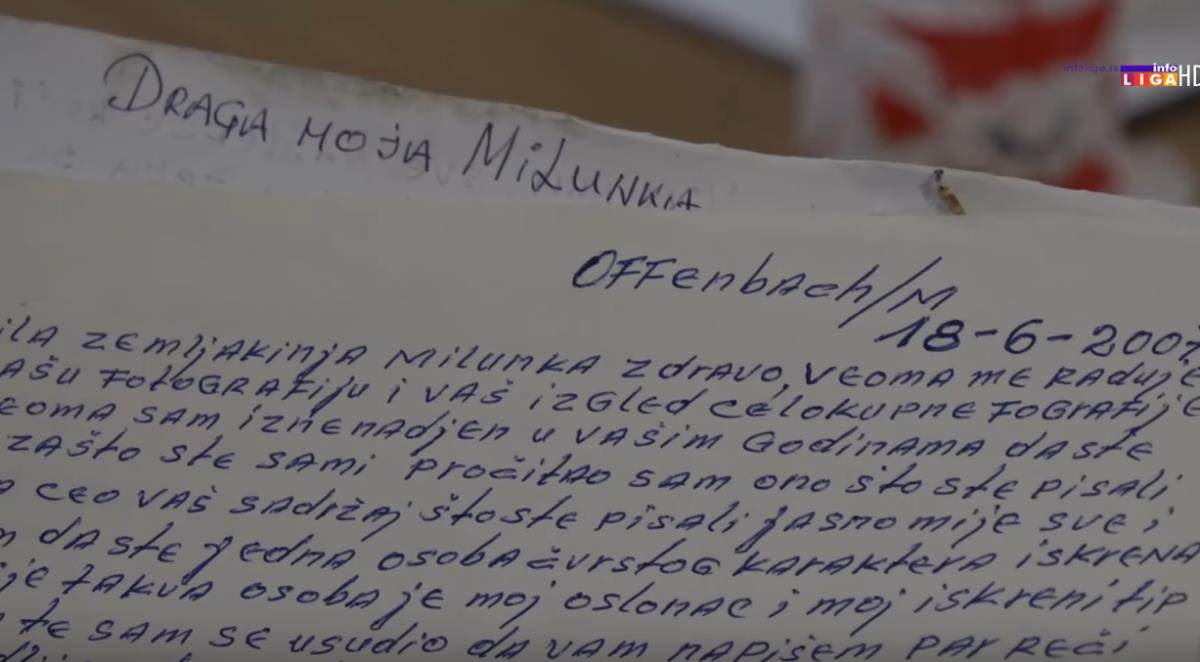 infoliga.rs info
LIGA HD
DRAGA MOJA MILUNKA
OFFenbach/M
18-6-2007
ZEMLJAKINJA MILUNKA ZDRAVO, VEOMA ME RADUJE
FOTOGRAFIJU I VAŠ IZGLED CELOKUPNE FOGRAFIJE
SAM IZNENADJEN U VAŠIM GODINAMA DA STE
ZAŠTO STE SAMI PROČITAO SAM ONO ŠTO STE PISALI
CEO VAŠ SADRŽAJ ŠTO STE PISALI JASNO MI JE SVE I
DA STE JEDNA OSOBA ČVRSTOG KARAKTERA ISKRENA
TAKVA OSOBA JE MOJ OSLONAC I MOJ ISKRENI TIP
SAM SE USUDIO DA VAM NAPIŠEM PAR REČI